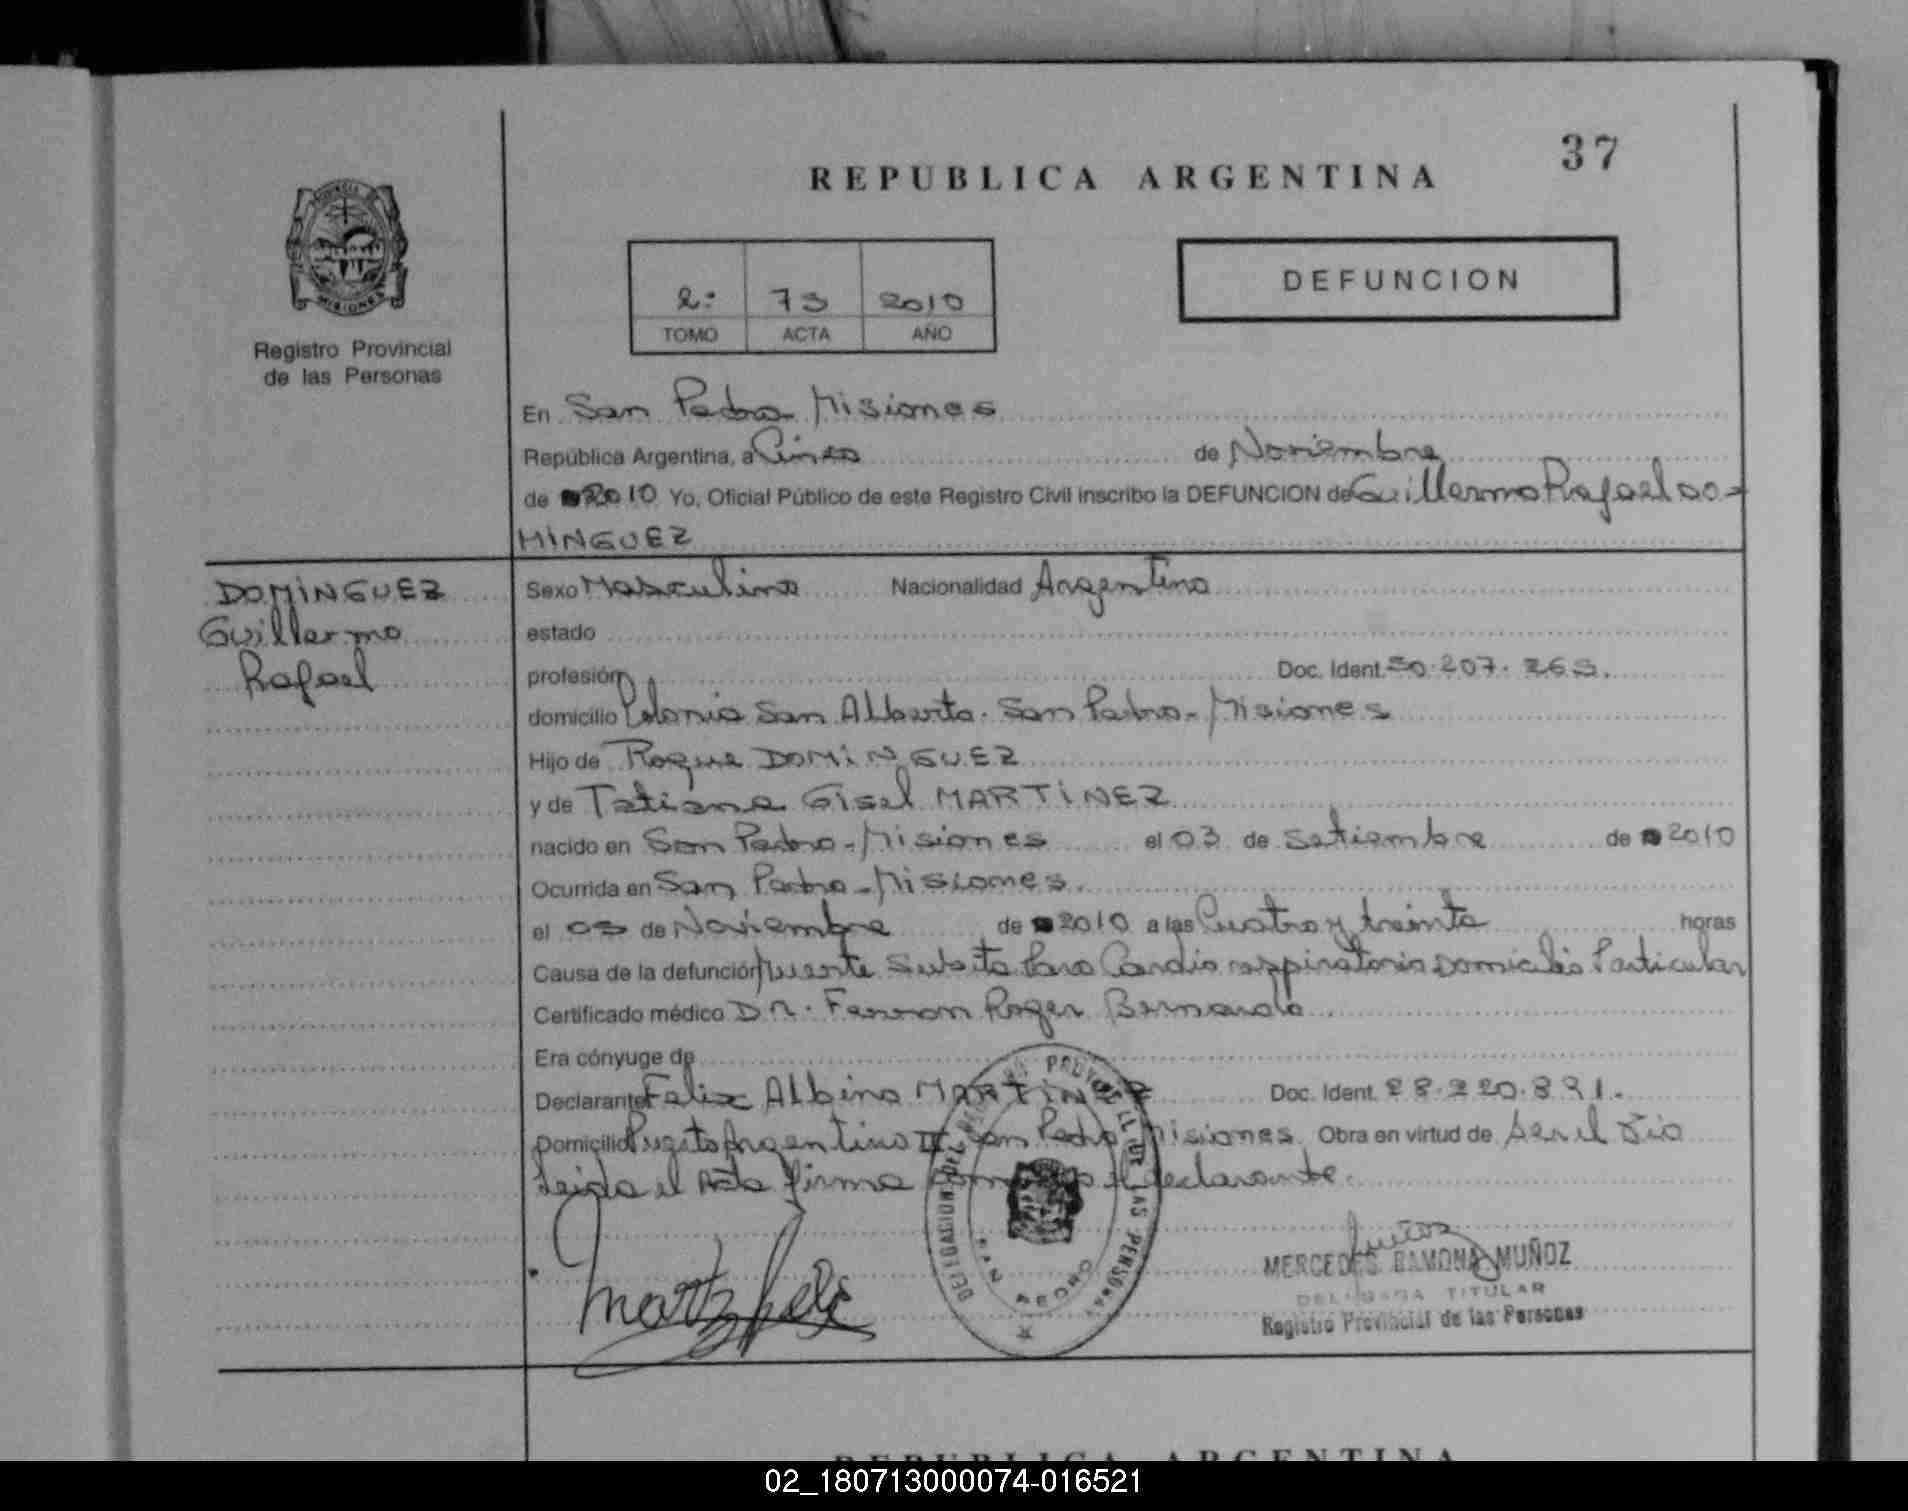 37
REPUBLICA ARGENTINA
PROVINCIA DE
MISIONES
Registro Provincial
de las Personas
2º 73 2010
TOMO ACTA AÑO
DEFUNCION
En San Pedro Misiones
República Argentina, a Cinco de Noviembre
de 2010 Yo, Oficial Público de este Registro Civil inscribo la DEFUNCION de Guillermo Rafael DO-
MINGUEZ
DOMINGUEZ
Guillermo
Rafael
Sexo Masculino Nacionalidad Argentino
estado
profesión Doc. Ident. 50.207.265.
domicilio Colonia San Alberto. San Pedro-Misiones
Hijo de Roque DOMINGUEZ
y de Tatiana Gisel MARTINEZ
nacido en San Pedro-Misiones el 03 de Setiembre de 2010
Ocurrida en San Pedro-Misiones.
el 05 de Noviembre de 2010 a las Cuatro y treinta horas
Causa de la defunción Muerte Subita Paro Cardio respiratorio Domicilio Particular
Certificado médico DR. Roger Bernardo
Era cónyuge de
Declarante Felix Albino MARTINEZ Doc. Ident. 28.220.891.
Domicilio Puzito Argentino II San Pedro Misiones Obra en virtud de Ser el Tio
Leida el Acta firma conmigo el declarante.
DELEGACION DEL REGISTRO PROVINCIAL DE LAS PERSONAS
SAN PEDRO
Martz Feli
Muñoz
MERCEDES RAMONA MUÑOZ
DELEGADA TITULAR
Registro Provincial de las Personas
REPUBLICA ARGENTINA
02_180713000074-016521